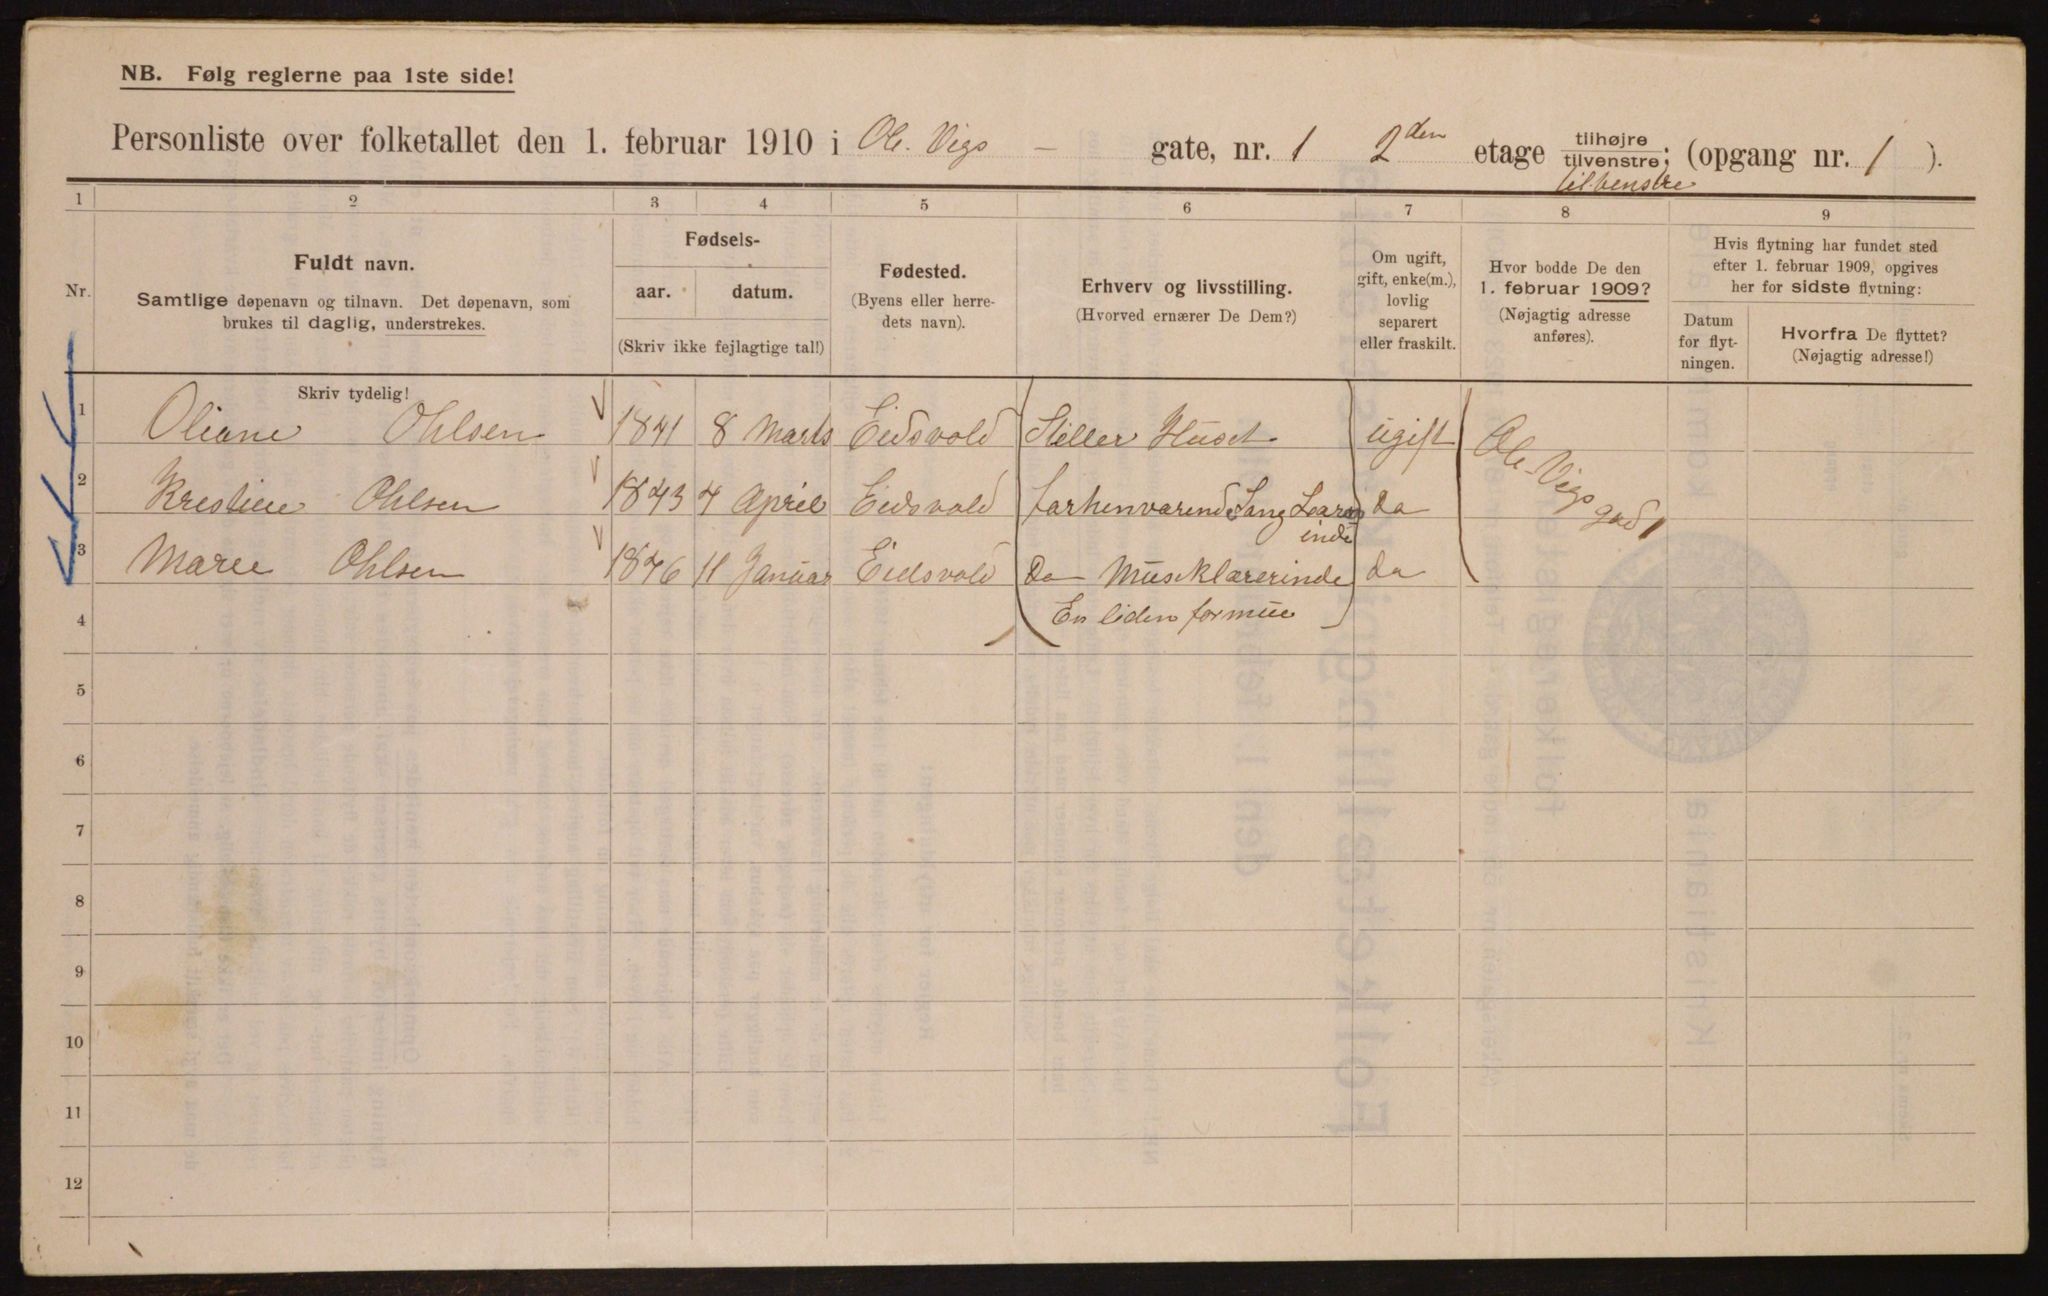 NB. Følg reglerne paa 1ste side!
Personliste over folketallet den 1. februar 1910 i Ole Vigs - gate, nr. 1 2den etage tilhøjre
tilvenstre; (opgang nr. 1 ).
tilvenstre
1 2 3 4 5 6 7 8 9
Nr.
Fuldt navn.
Samtlige døpenavn og tilnavn. Det døpenavn, som
brukes til daglig, understrekes.
Fødsels-
aar. datum.
(Skriv ikke fejlagtige tal!)
Fødested.
(Byens eller herre-
dets navn).
Erhverv og livsstilling.
(Hvorved ernærer De Dem?)
Om ugift,
gift, enke(m.),
lovlig
separert
eller fraskilt.
Hvor bodde De den
1. februar 1909?
(Nøjagtig adresse
anføres).
Hvis flytning har fundet sted
efter 1. februar 1909, opgives
her for sidste flytning:
Datum
for flyt-
ningen.
Hvorfra De flyttet?
(Nøjagtig adresse!)
Skriv tydelig!
1 Oliane Ohlsen 1841 8 Marts Eidsvold Steller Huset ugift Ole Vigs gad 1
2 Kristine Ohlsen 1843 7 April Eidsvold forhenværend Sang Lærer
inde Do
3 Marie Ohlsen 1846 11 Januar Eidsvold Do Musiklærerinde Do
4 En liden formue
5
6
7
8
9
10
11
12